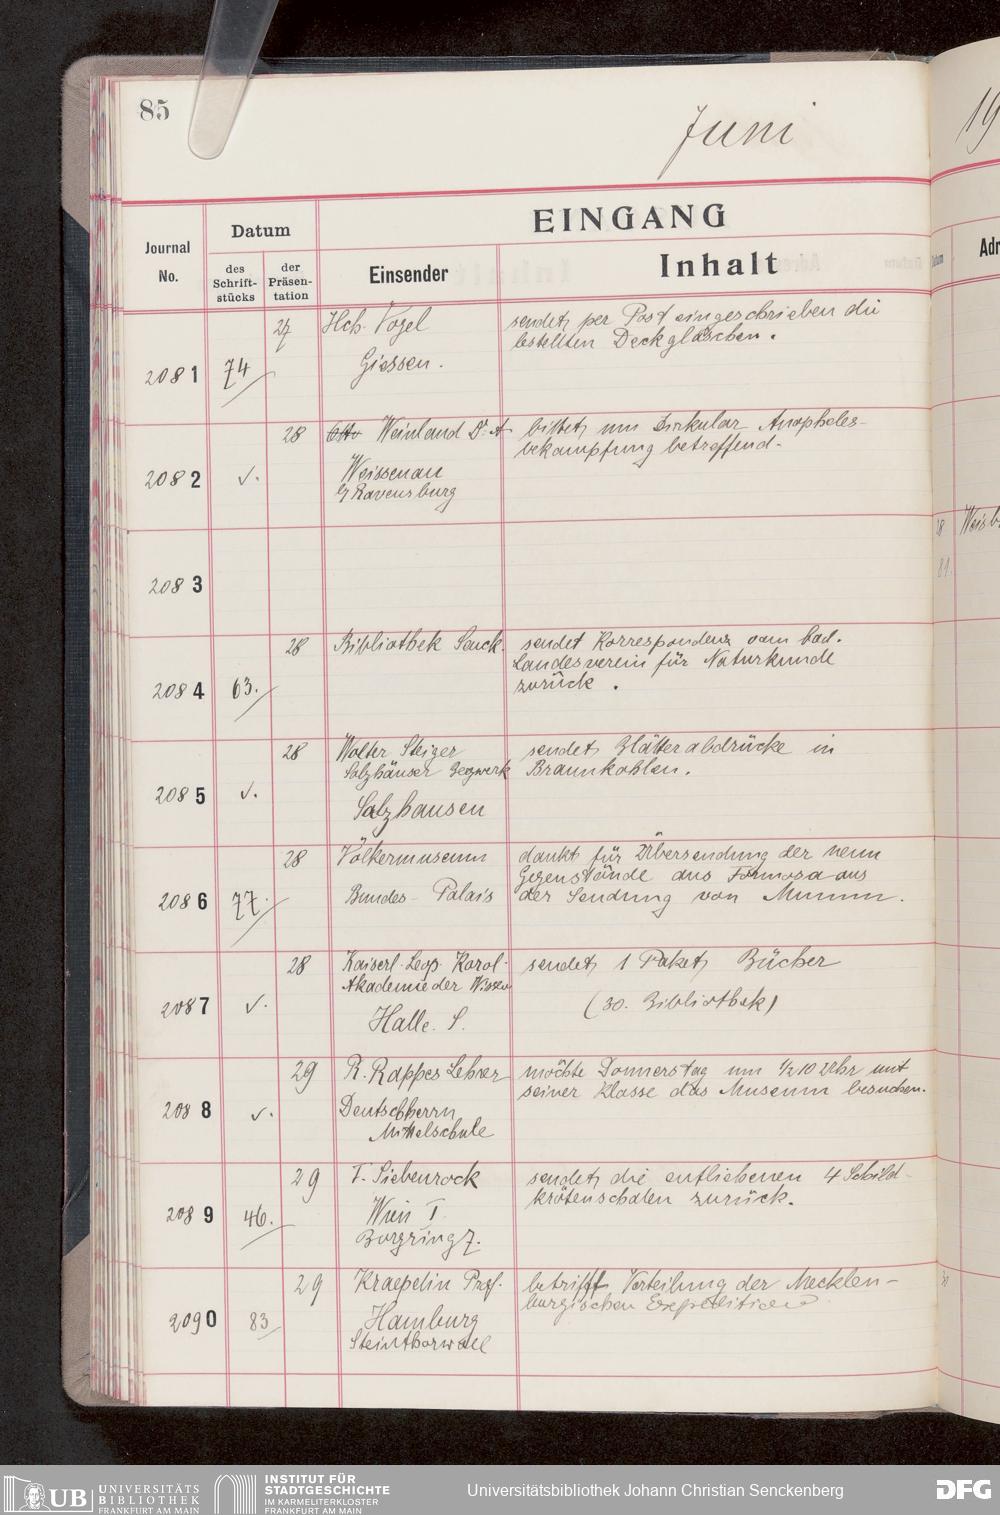 85
Juni
19
Journal No.
Datum
des Schrift-stücks
der Präsen-tation
EINGANG
Einsender
Inhalt
Adr
2081
74
27
Hch. Vogel
Giessen.
sendet per Post eingeschrieben die
bestellten Deckgläschen.
2082
✓.
28
Otto Weinland Dr. A
Weissenau
b/ Ravensburg
bittet um Zirkular Anopheles-
bekämpfung betreffend.
2083
28
Weisb
81.
2084
63.
28
Bibliothek Senck.
sendet Korrespondenz vom bad.
Landesverein für Naturkunde
zurück.
2085
✓.
28
Walter Steiger
Salzhäuser Bergwerk
Salzhausen
sendet Blätterabdrücke in
Braunkohlen.
2086
77.
28
Völkermuseum
Bundes-Palais
dankt für Übersendung der neun
Gegenstände aus Formosa aus
der Sendung von Mumm.
2087
✓.
28
Kaiserl. Leop. Karol.
Akademie der Wissen
Halle. S.
sendet 1 Paket Bücher
(30. Bibliothek)
2088
✓.
29
R. Rappes Lehrer
Deutschherrn
Mittelschule
möchte Donnerstag um 1/2 10 Uhr mit
seiner Klasse das Museum besuchen.
2089
46.
29
F. Siebenrock
Wien I
Burgring 7.
sendet die entliehenen 4 Schild-
krötenschalen zurück.
2090
83
29
Kraepelin Prof.
Hamburg
Steinthorwall
betrifft Verteilung der Mecklen-
burgischen Expedition
UB
UNIVERSITÄTS
BIBLIOTHEK
FRANKFURT AM MAIN
INSTITUT FÜR
STADTGESCHICHTE
IM KARMELITERKLOSTER
FRANKFURT AM MAIN
Universitätsbibliothek Johann Christian Senckenberg
DFG